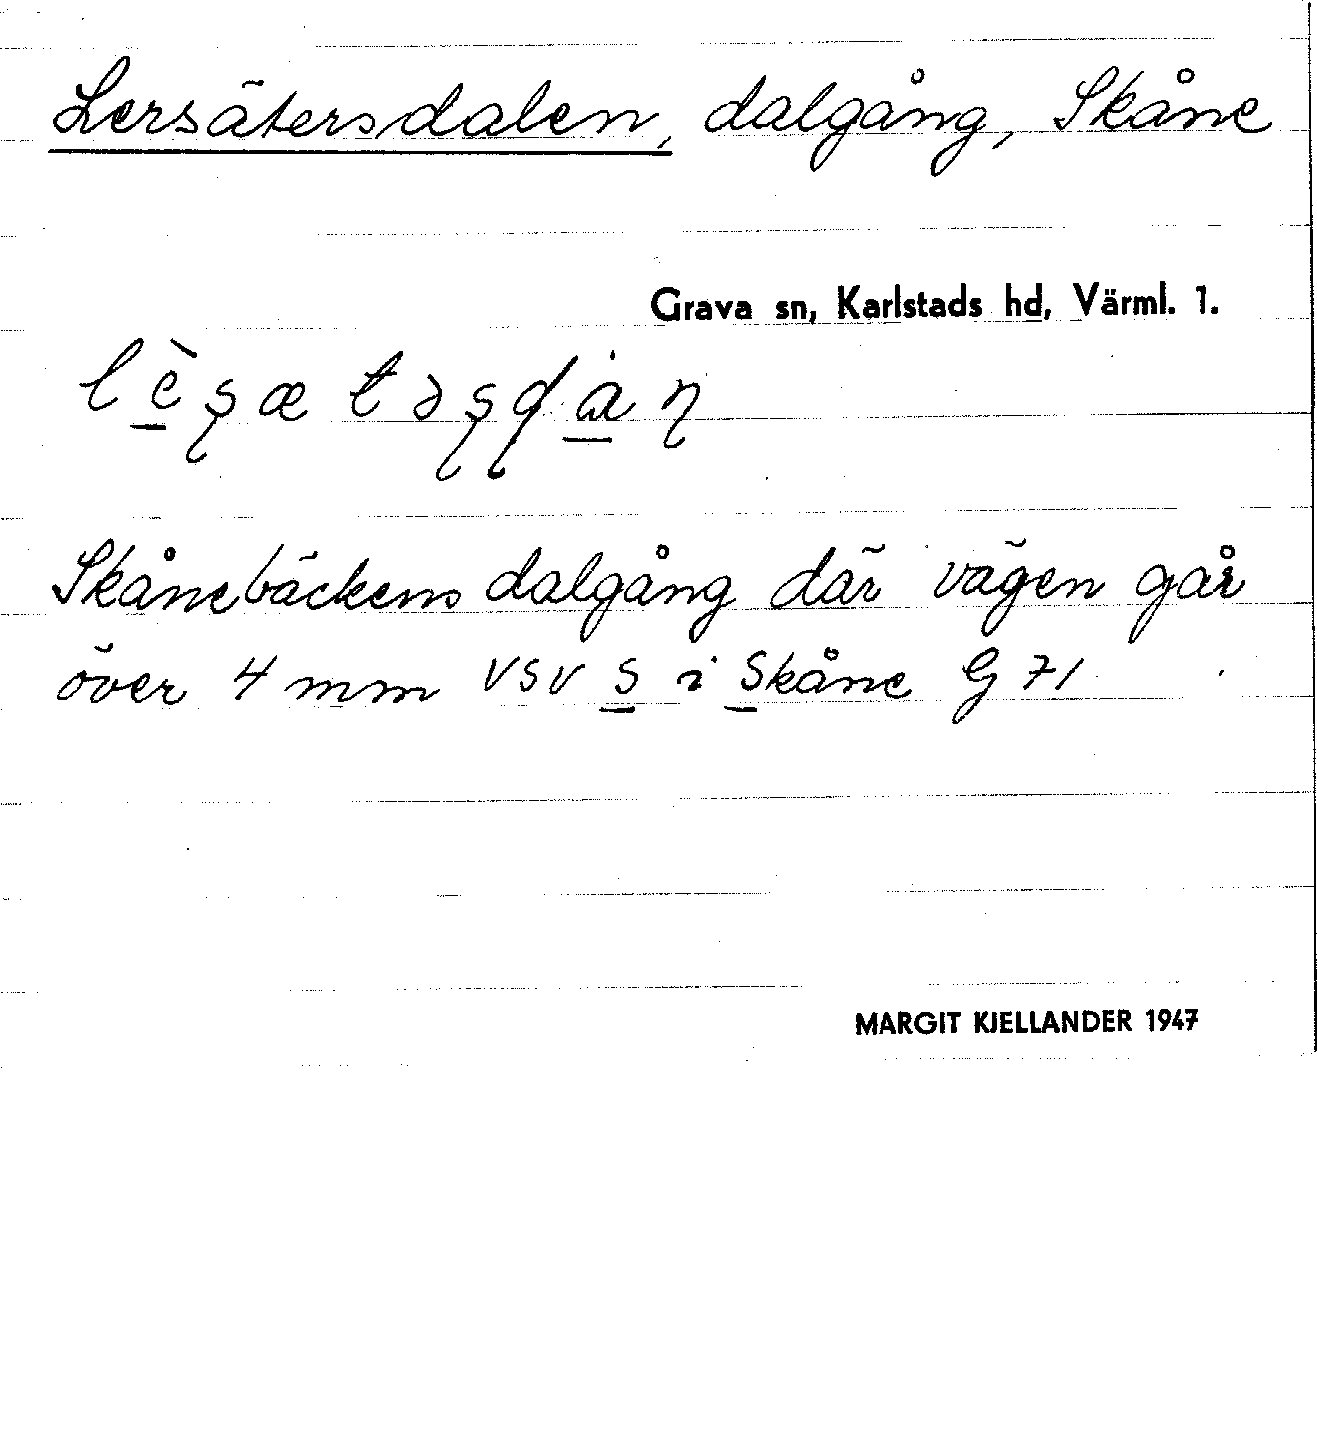 Lersätersdalen, dalgång, Skåne
Grava sn, Karlstads hd, Värml. 1.
lèʂætəʂɖàɳ
Skånebäckens dalgång där vägen går
över 4 mm VSV S i Skåne G 71
MARGIT KJELLANDER 1947